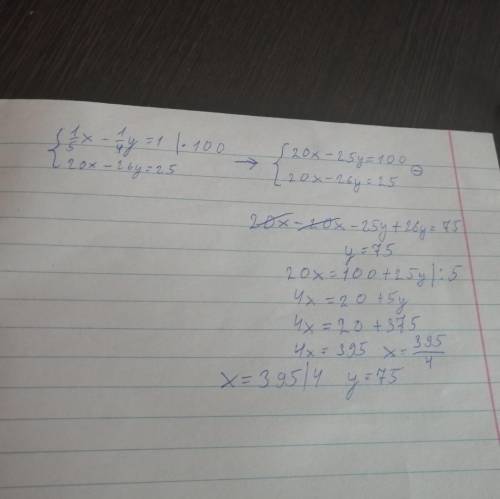 { 1/5 x - 1/4 y = 1 | · 100 → { 20x - 25y = 100
{ 20x - 26y = 25 { 20x - 26y = 25 ⊖
20x - 20x - 25y + 26y = 75
y = 75
20x = 100 + 25y | : 5
4x = 20 + 5y
4x = 20 + 375
4x = 395 x = 395/4
x = 395/4 y = 75